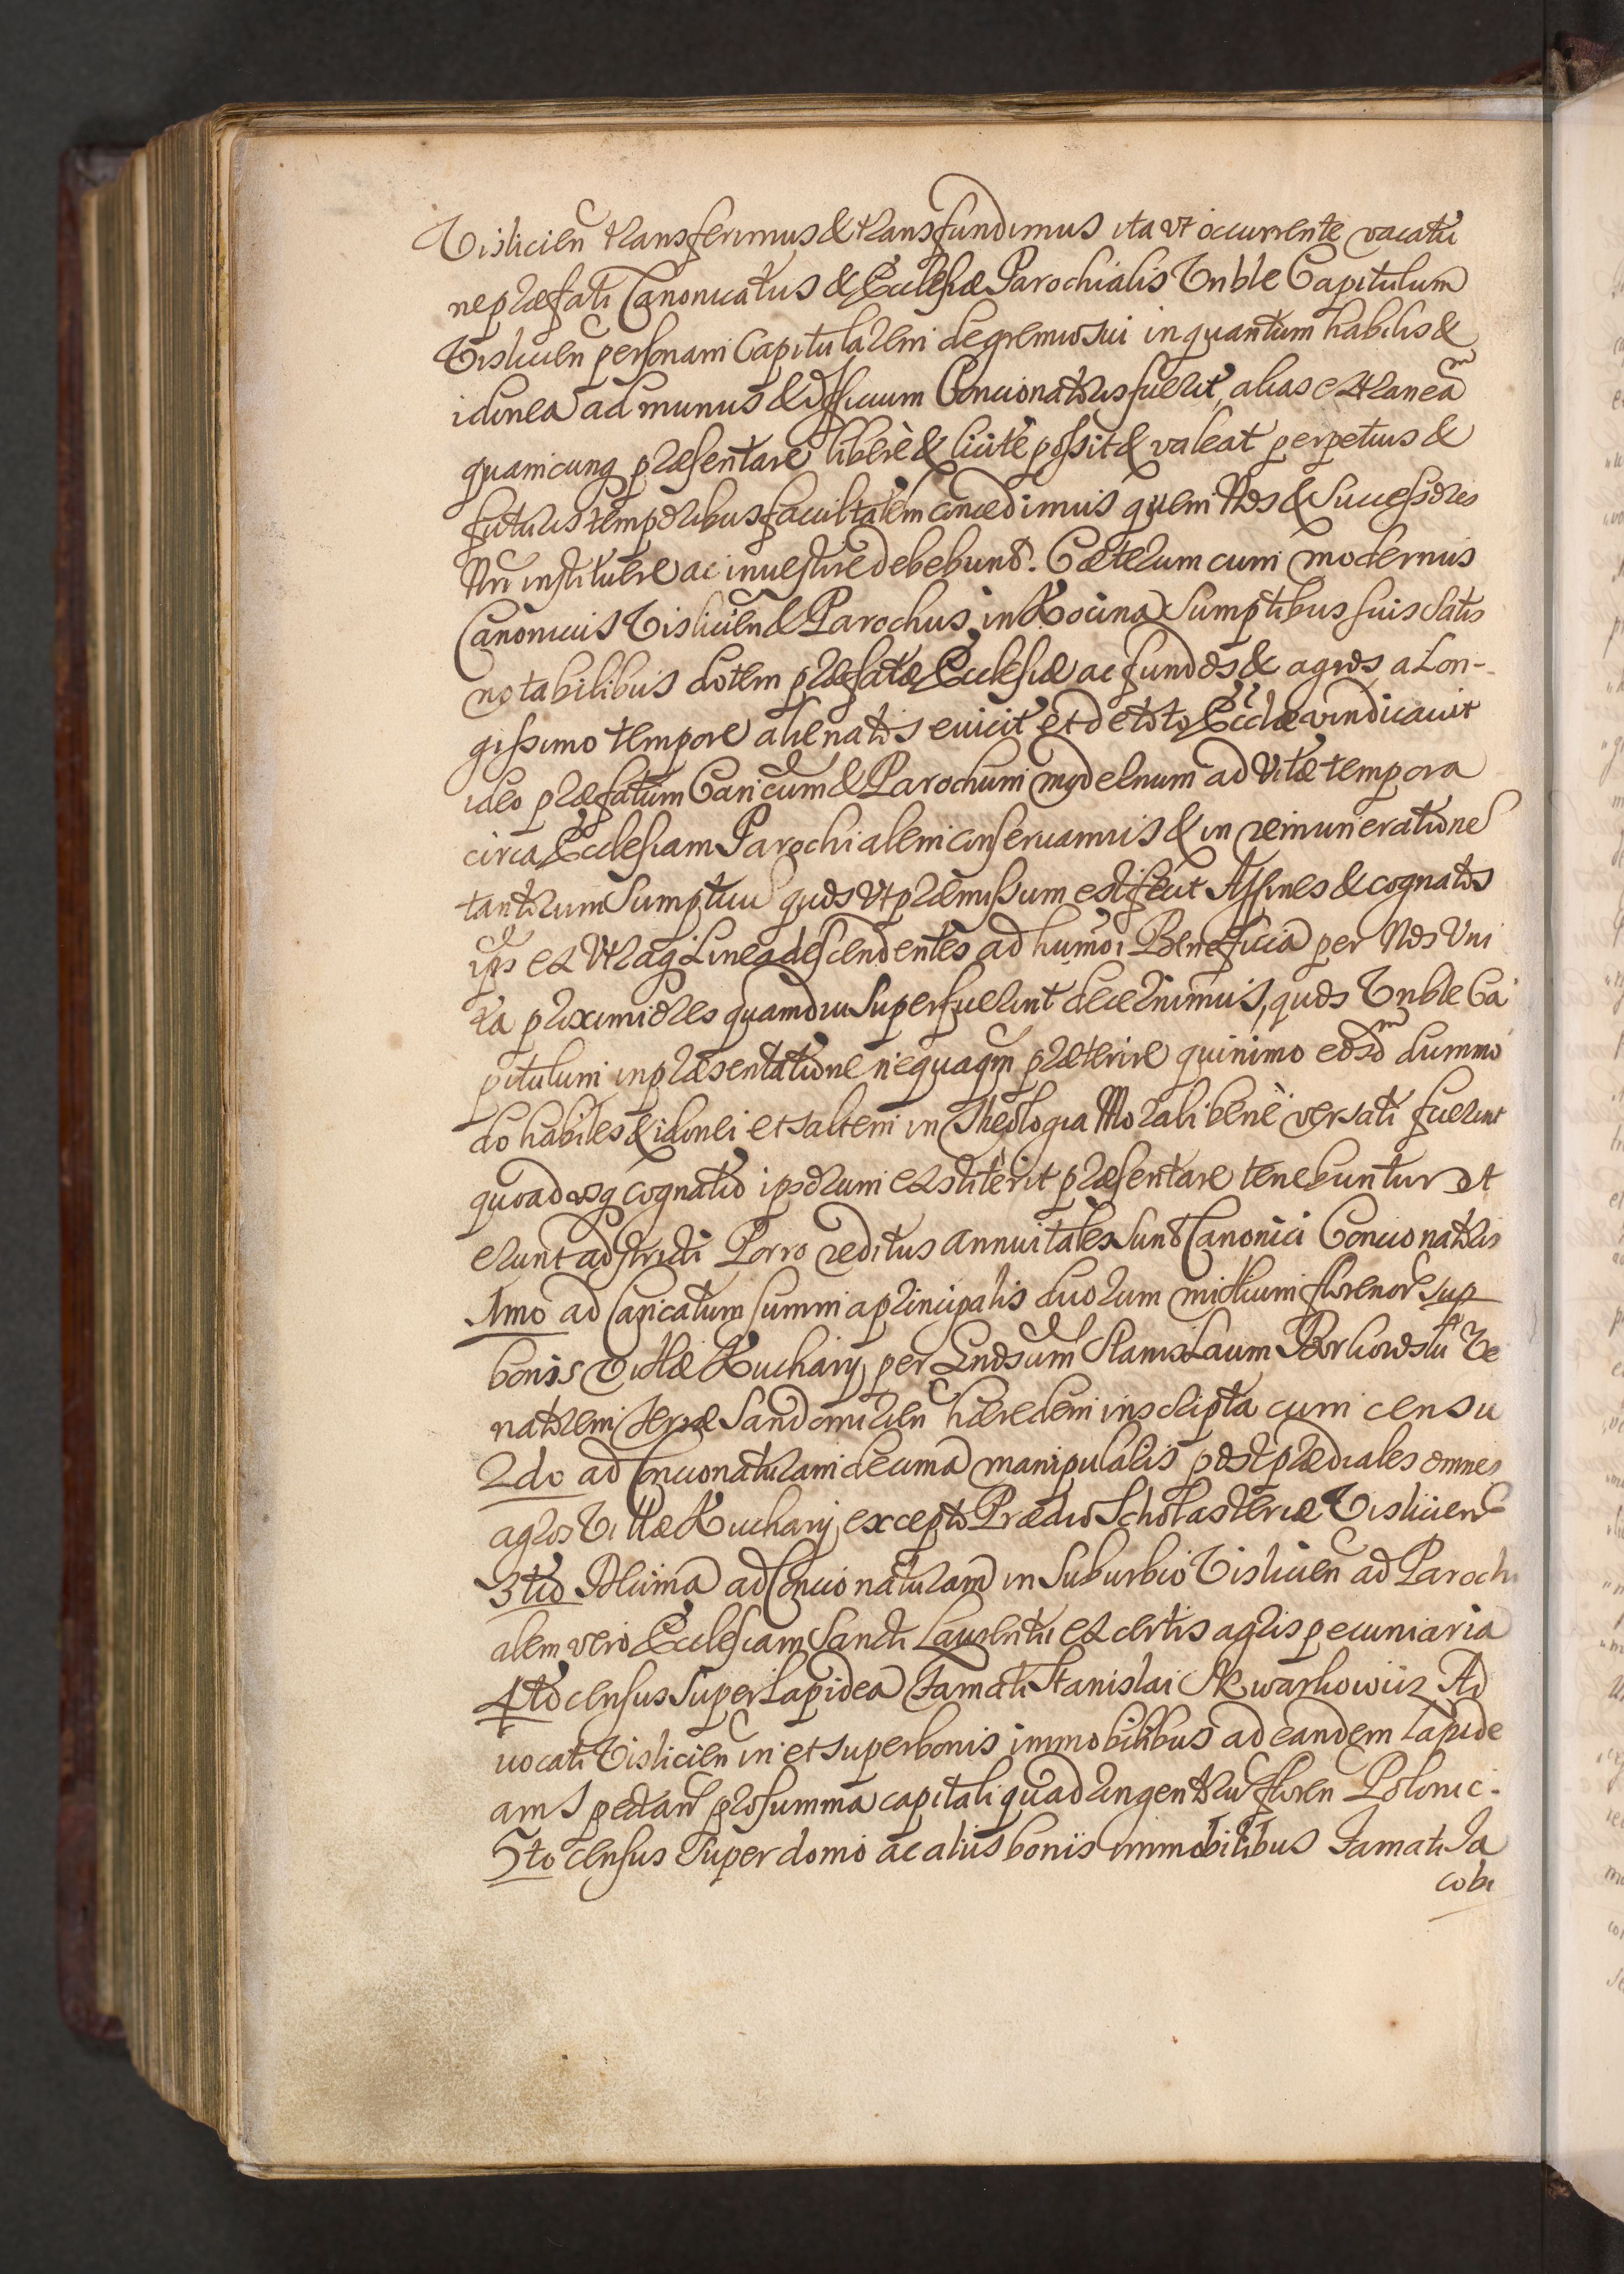 Visliciens transferimus & transfundimus ita vt occurrente vacatio
ne præfati Canonicatus & Ecclesiæ Parochialis Vnble Capitulum
Vislicien personam Capitularem de gremio sui in quantum habilis &
idonea ad munus & officium Concionatoris fuerit, alias extraneam
quamcunq præsentare liberè & licitè possit & valeat perpetuis &
futuris temporibus facultatem concedimus quem Nos & Successores
Nri instituere ac inuestire debebunt. Cæterum cum modernus
Canonicus Vislicien & Parochus in Kocina Sumptibus suis satis
notabilibus dotem præfatæ Ecclesiæ ac fundos & agros a Lon-
gissimo tempore alienatos euicit et de toto Ecclæ vindicauit
ideo præfatum Canicum & Parochum modernum ad Vitæ tempora
circa Ecclesiam Parochialem conseruamus & in remuneratione
tantorum Sumptuu quos Vt præmissum est fecit Affines & cognatos
ips ex Vtraq Linea descendentes ad humoi Beneficia per Nos Vni
ta proximiores quamdiu Superfuerint decernimus, quos Vnble Ca
pitulum in præsentatione nequaqm præterire quinimo eosdm dummo
do habiles & idonei et saltem in Theologia Morali benè versati fuerint
quoadusq cognatio ipsorum extiterit præsentare tenebuntur et
erunt adstricti Porro reditus annuitales sunt Canonici Concionatoris
1mo ad Canicatum summa principalis duorum millium florenor sup
bonis Villæ Kuchary per Gndsum Stanislaum Borkowski Ve
natorem Terræ Sandomirien hæredem inscripta cum censu
2do ad Concionaturam decima manipulalis post prædiales omnes
agros Villæ Kuchary excepto Prædio Scholasteriæ Vislicien
3tio Decima ad Concionaturam in Suburbio Vislicien ad Parochi
alem vero Ecclesiam Sancti Laurentii ex certis agris pecuniaria
4to census Super Lapidea Famati Stanislai Skwarkowicz Ad
uocati Vislicien in et super bonis immobilibus ad eandem Lapide
am Spectan pro summa capitali quadringentoru floren Polonic.
5to census Super domo ac aliis boniis immobilibus Famati Ja
cobi